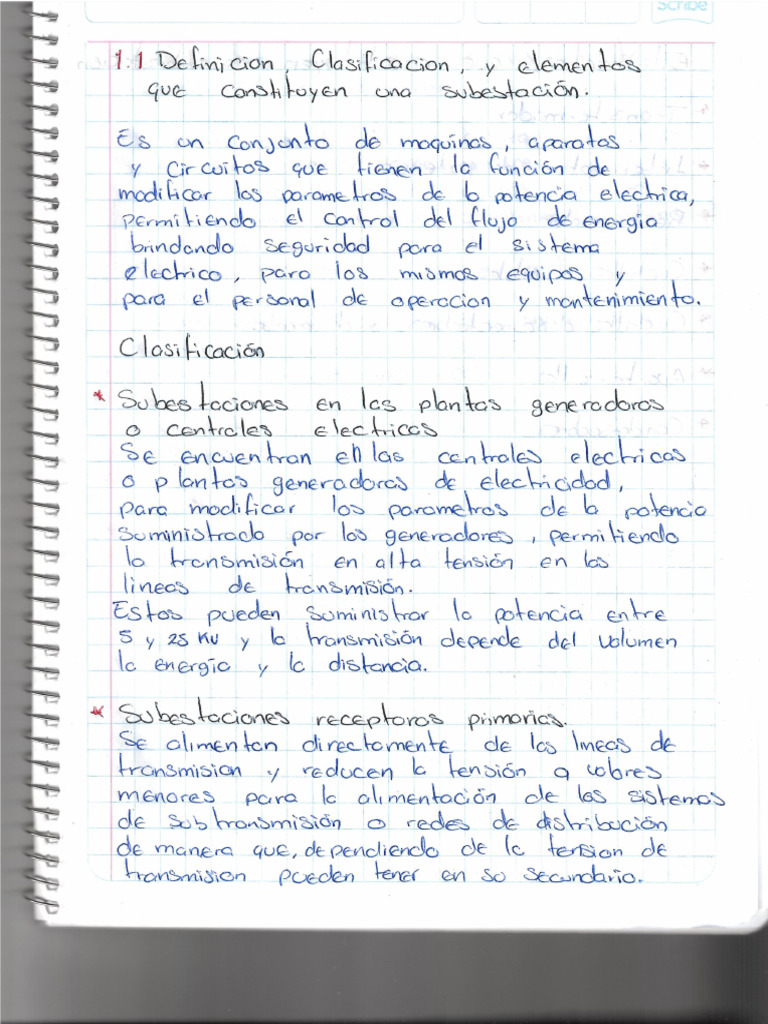 Scribe
1.1 Definicion, Clasificacion, y elementos
que constituyen una subestación.
Es un conjunto de maquinas, aparatos
y circuitos que tienen la función de
modificar los parametros de la potencia electrica,
permitiendo el control del flujo de energía
brindando seguridad para el sistema
electrico, para los mismos equipos y
para el personal de operacion y mantenimiento.
Clasificación
* Subestaciones en las plantas generadoras
o centrales electricas
Se encuentran en las centrales electricas
o plantas generadoras de electricidad,
para modificar los parametros de la potencia
suministrada por los generadores, permitiendo
la transmisión en alta tensión en las
lineas de transmisión.
Estas pueden suministrar la potencia entre
5 y 25 KV y la transmisión depende del volumen
la energía y la distancia.
* Subestaciones receptoras primarias.
Se alimentan directamente de las lineas de
transmision y reducen la tensión a valores
menores para la alimentación de los sistemas
de subtransmisión o redes de distribución
de manera que, dependiendo de la tension de
transmision pueden tener en su secundario.